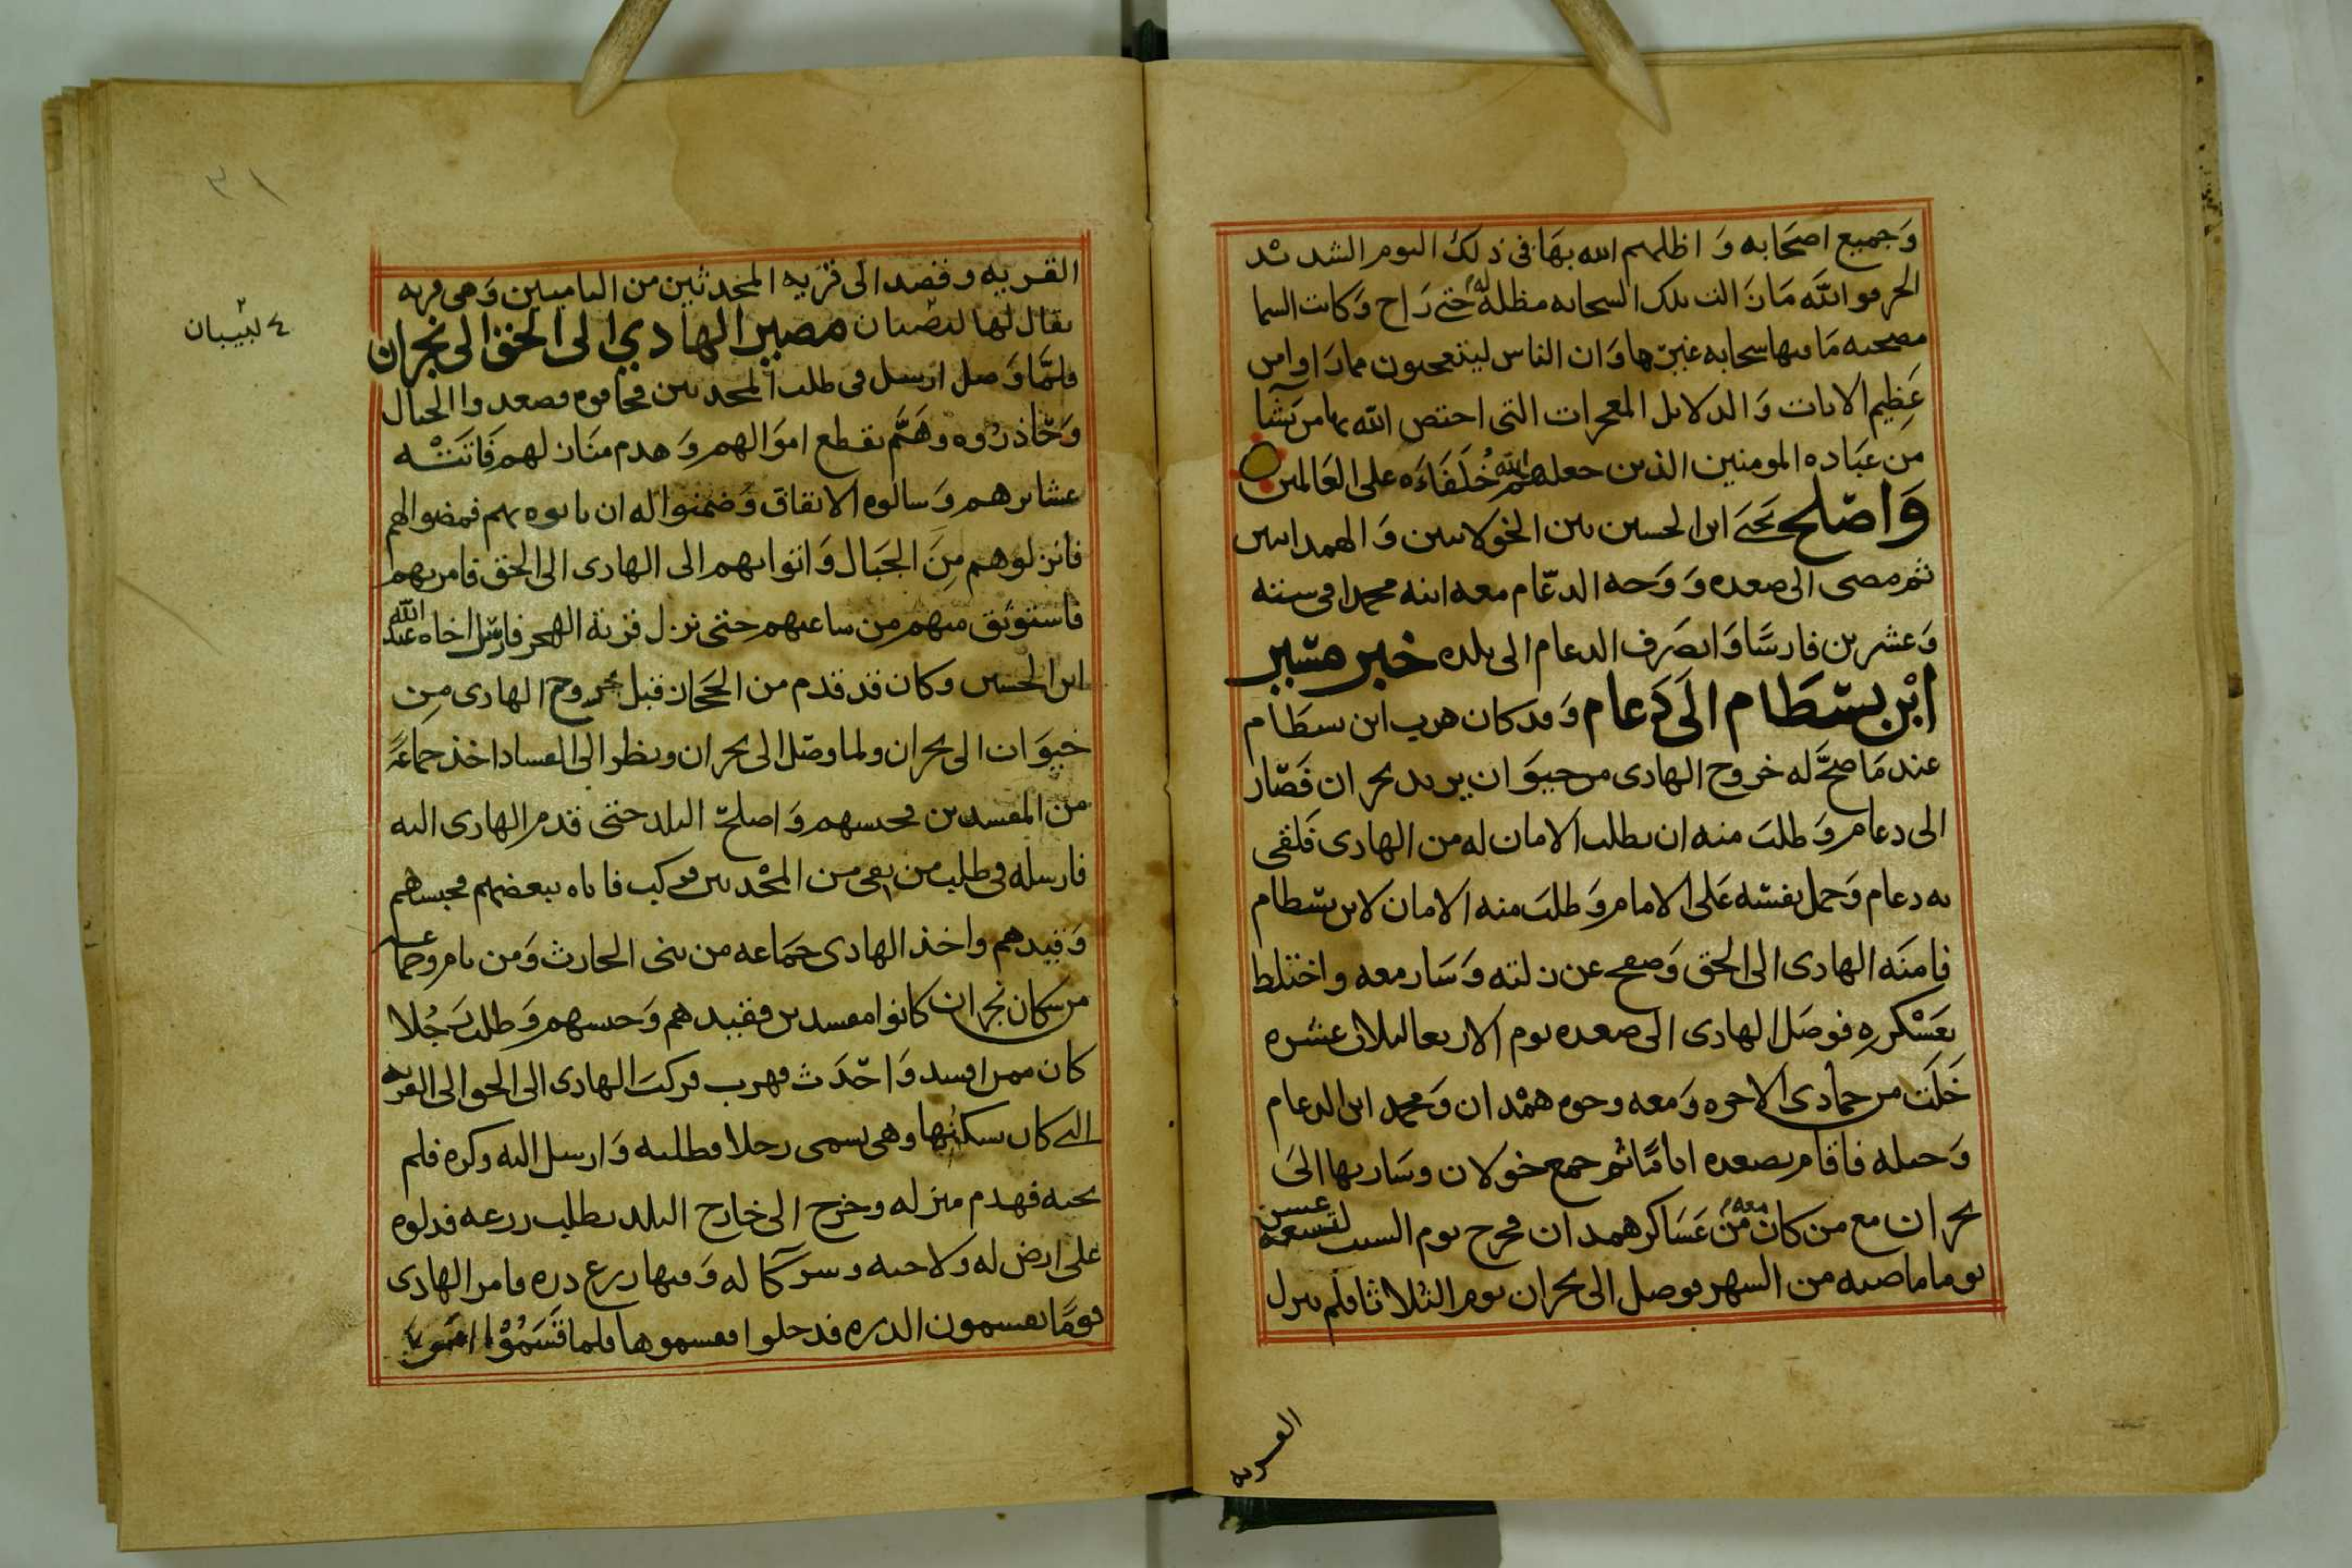 وَجميع اصحَابه وَ اظلهم الله بهَا فى ذلك اليوم الشديد
الحر فو اللَّه مَا زَالت تلك السحابه مظله له حتى رَاح وَكانت السما
مصحيه مَا فيها سحابه غيرها وَان الناس ليتعجبون مما رَاوا من
عَظِيم الايات وَ الدلايل المعجزات التى اختص اللَّه بها من يَشآ
من عبَاده المومنين الذين جعلهم الله خُلَفَاءَه على العَالمين
وَاصْلح يَحيَى ابن الحسين بين الخولانيين وَ الهمدانيين
ثم مضى الى صعده وَ وَجه الدعَّام معه ابنه محمدا فى ستته
وَعشرين فارسًا وَانصَرف الدعام الى بلده خبر مسير
ابْن بسْطَام الَى دعام وَ قد كان هرب ابن بسطَام
عند مَا صَحَّ له خروج الهادى من خيوَان يريد نجران فَصَار
الى دعام وَ طلبَ منه ان يطلب الامان له من الهادى فَلقى
به دعام وَحمل نفسَه عَلى الامام وَ طلبَ منه الامان لابن بسطام
فامنَه الهادى الى الحق وَصفح عن زلته وَ سَار معه واختلط
بعَسْكرهِ فوصَل الهادى الى صعده يوم الاربعا لثلاث عشره
خَلَت من جمادى الاخره وَمعه وجوه همْدان وَمحمد ابن الدعام
وَ خيله فاقام بصعده ايامًا ثم جمع خولان وسَار بها الىَ
نجران مع من كان معه من عَسَاكر همدان فخرج يوم السبت لتسعه عشر
يوما ماضيه من الشهر فوصل الى نجران يوم الثلاثا فلم ينزل
القريه
٣١
٤ لبيبان
القريه وقصد الى قريه المحدثين من الياميين وَهى قريه
يقال لها مصير الهادي الى الحق الى نجران
فلمَّا وَصل ارسل فى طلب المحدثين فخافوه فصعدوا الجبال
وَحَاذرُوه وَهَمَّ بقطع اموَالهم وَ هدم منَازلهم فَاتَتْه
عشايرهم وَسالوه الاتقاق وَضمنوا له ان ياتوه بهم فمضوا لهم
فانزلوهم مِنَ الجبَال وَاتوا بهم الى الهادى الى الحق فامر بهم
فاستوثق منهم من ساعتهم حتى نزل قرية الهجر فارسَل اخاه عبد الله
ابن الحسين وكان قد قدم من الحجاز قبل خروج الهادى من
خيوَان الى نجران ولما وصَل الى نجران ونظر الى الفساد اخذ جماعَةً
من المفسدين فحبسهم وَ اصلحَ البلد حتى قدم الهادى اليه
فارسله فى طلب من بقى من المحْدثين فركب فاتاه ببعضهم فحبسهم
وَقيدهم واخذ الهادى جمَاعه من بنى الحارث وَمن يام وجماعـه
من سكان نجران كانوا مفسدين فقيدهم وَحبسهم وَطلب رَجُلا
كان ممن افسد وَاحَدَث فهرب فركبَ الهادى الى الحق الى القريه
التى كان يسكنُها وهى تسمى رجلا فطلبه وَارسل اليه وكره فلم
يجبه فهدم منزله وخرج الى خارج البلد يطلب زرعه فدلوه
على ارض له ولاخيه وشركا له وَفيها زرع ذره فامر الهادى
قومًا يقسمون الذره فدخلوا فقسموها فلما قَسَمُوْا